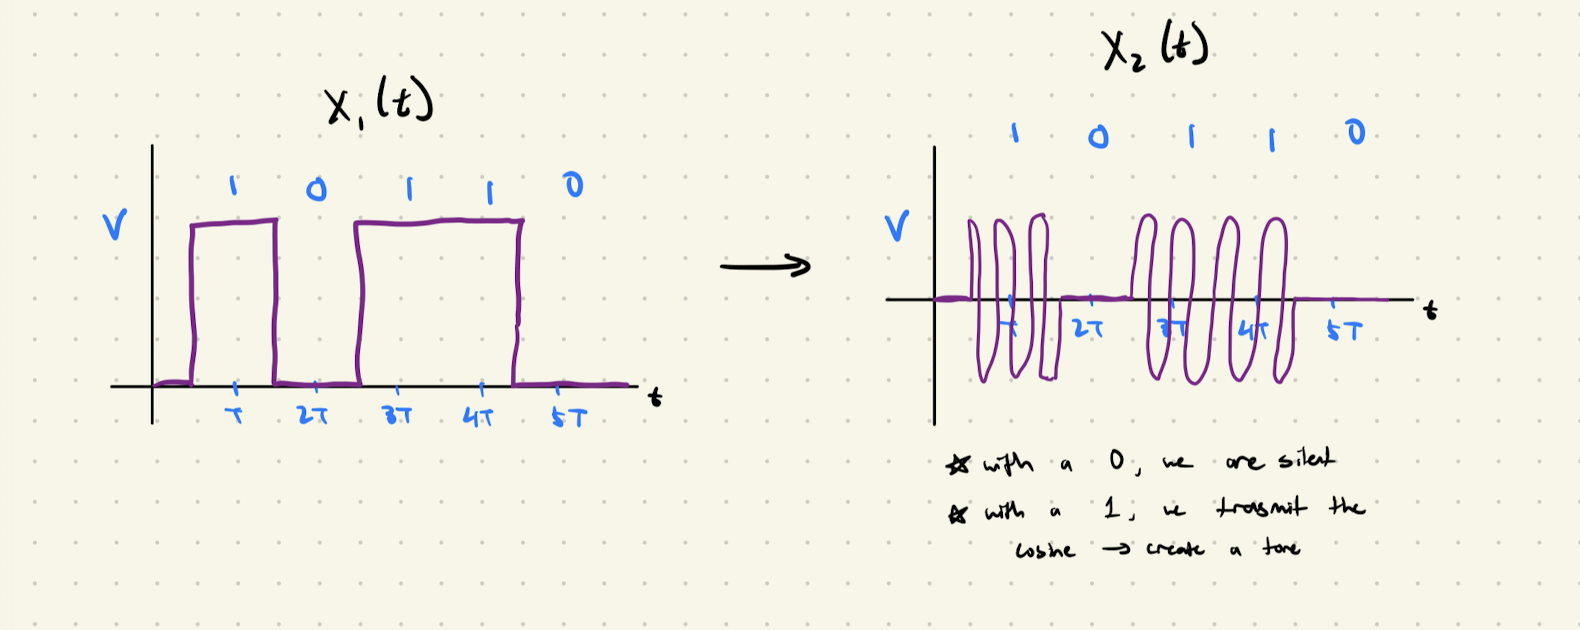 X₁(t)
1 0 1 1 0
V
T 2T 3T 4T 5T
t
X₂(t)
1 0 1 1 0
V
T 2T 3T 4T 5T
t
☆ with a 0, we are silent
☆ with a 1, we trasmit the
cosine → create a tone